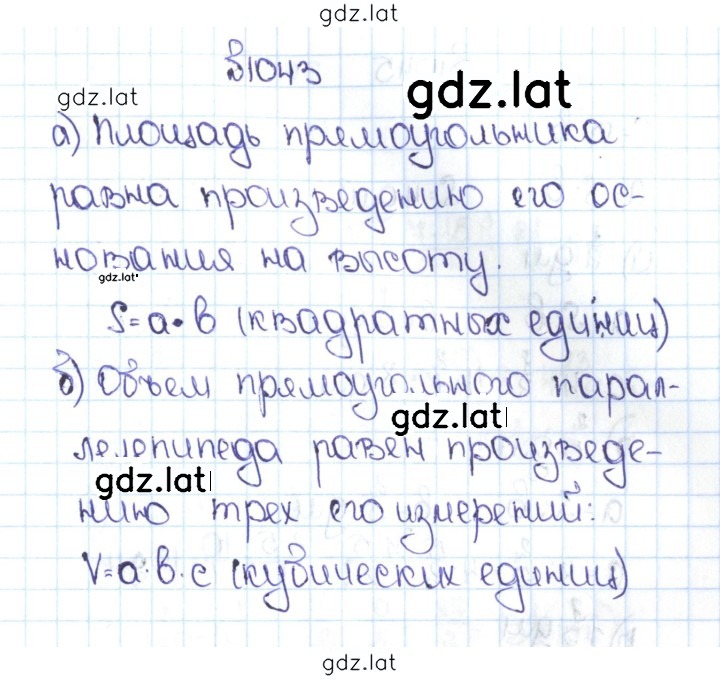 gdz.lat
№1043
gdz.lat
gdz.lat
а) Площадь прямоугольника
равна произведению его ос-
нования на высоту.
gdz.lat
S=a·b (квадратных единиц)
б) Объем прямоугольного парал-
gdz.lat
лелепипеда равен произведе-
gdz.lat
нию трех его измерений:
V=a·b·c (кубических единиц)
gdz.lat